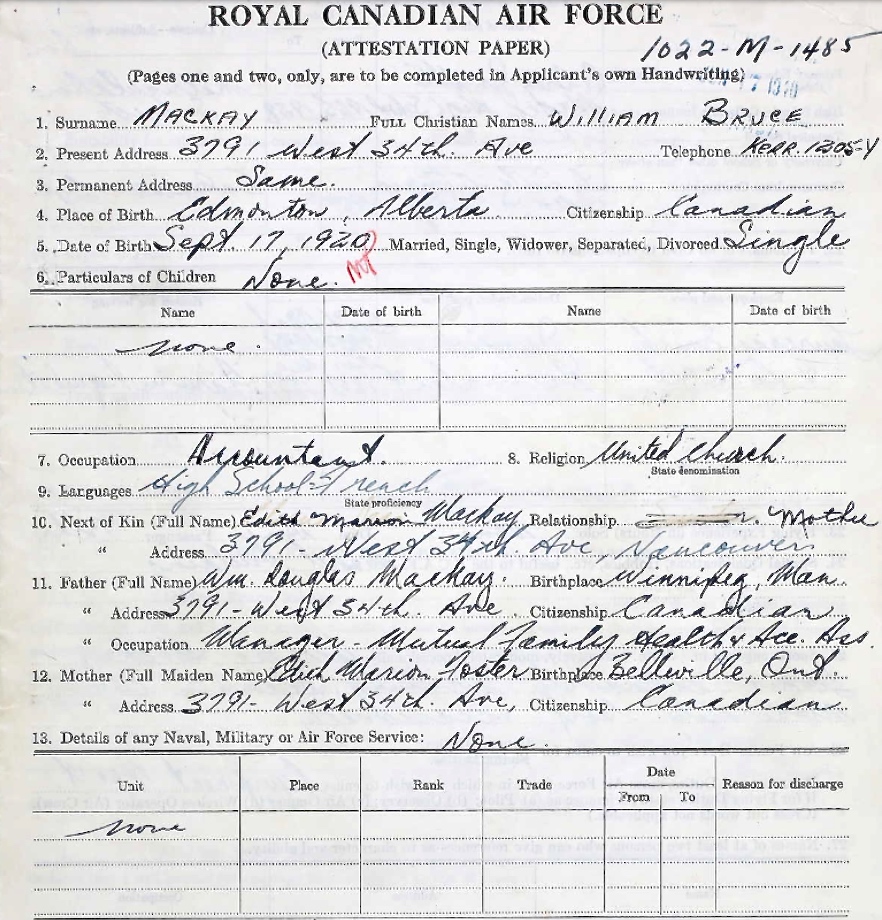 ROYAL CANADIAN AIR FORCE
(ATTESTATION PAPER) 1022-M-1485
(Pages one and two, only, are to be completed in Applicant's own Handwriting)
1. Surname MACKAY FULL Christian Names WILLIAM BRUCE
2. Present Address 3791 West 34th. Ave Telephone KERR. 1305-Y
3. Permanent Address Same.
4. Place of Birth Edmonton, Alberta Citizenship Canadian
5. Date of Birth Sept. 17, 1920 Married, Single, Widower, Separated, Divorced Single
6. Particulars of Children None.
Name Date of birth Name Date of birth
none.
7. Occupation Accountant. 8. Religion United Church.
State denomination
9. Languages High School - French
State proficiency
10. Next of Kin (Full Name) Edith Marion Mackay Relationship Mother
" Address 3791 - West 34th. Ave, Vancouver
11. Father (Full Name) Wm. Douglas Mackay. Birthplace Winnipeg, Man.
" Address 3791 - West 34th. Ave. Citizenship Canadian
" Occupation Manager - Mutual Family Health & Acc. Ass.
12. Mother (Full Maiden Name) Edith Marion Foster Birthplace Belleville, Ont.
" Address 3791 - West 34th. Ave, Citizenship Canadian
13. Details of any Naval, Military or Air Force Service: None.
Unit Place Rank Trade Date Reason for discharge
From To
none